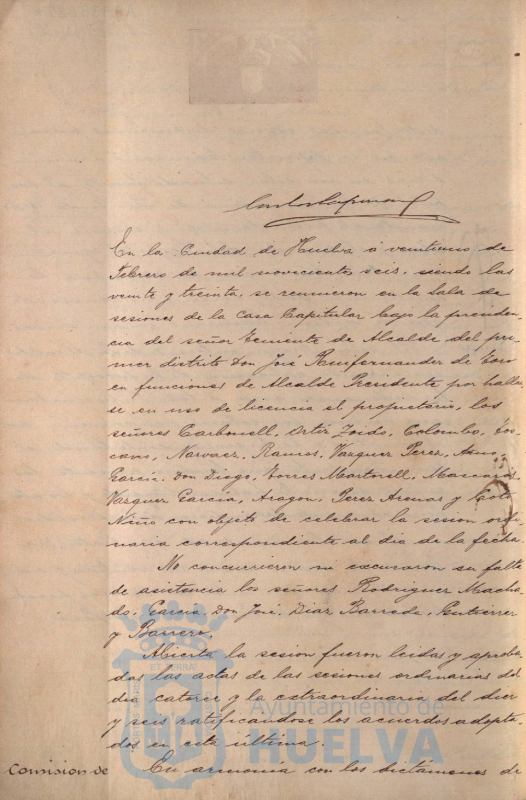 En la Ciudad de Huelva á veintiuno de
Febrero de mil novecientos seis, siendo las
veinte y treinta, se reunieron en la Sala de
sesiones de la Casa Capitular bajo la presiden-
cia del señor Teniente de Alcalde del pri-
mer distrito Don José Ruifernandez de Toro
en funciones de Alcalde Presidente por hallar-
se en uso de licencia el propietario, los
señores Carbonell, Ortiz Zoido, Colombo, Tos-
cano, Narvaez, Ramos, Vazquez Perez,
García, Don Diogo, Torres Martorell, Mascarós
Vazquez García, Aragon, Perez Arenas y Soto
Niño con objeto de celebrar la sesion ordi-
naria correspondiente al dia de la fecha.
No concurrieron ni excusaron su falta
de asistencia los señores Rodriguez Macha-
do, García, Don José, Diaz Barreda, Gutierrez
y Barrero.
Abierta la sesion fueron leidas y aproba-
das las actas de las sesiones ordinarias del
dia catorce y la extraordinaria del diez
y seis ratificandose los acuerdos adopta-
dos en esta última.
Comision de En armonía con los dictámenes de
Ayuntamiento de
HUELVA